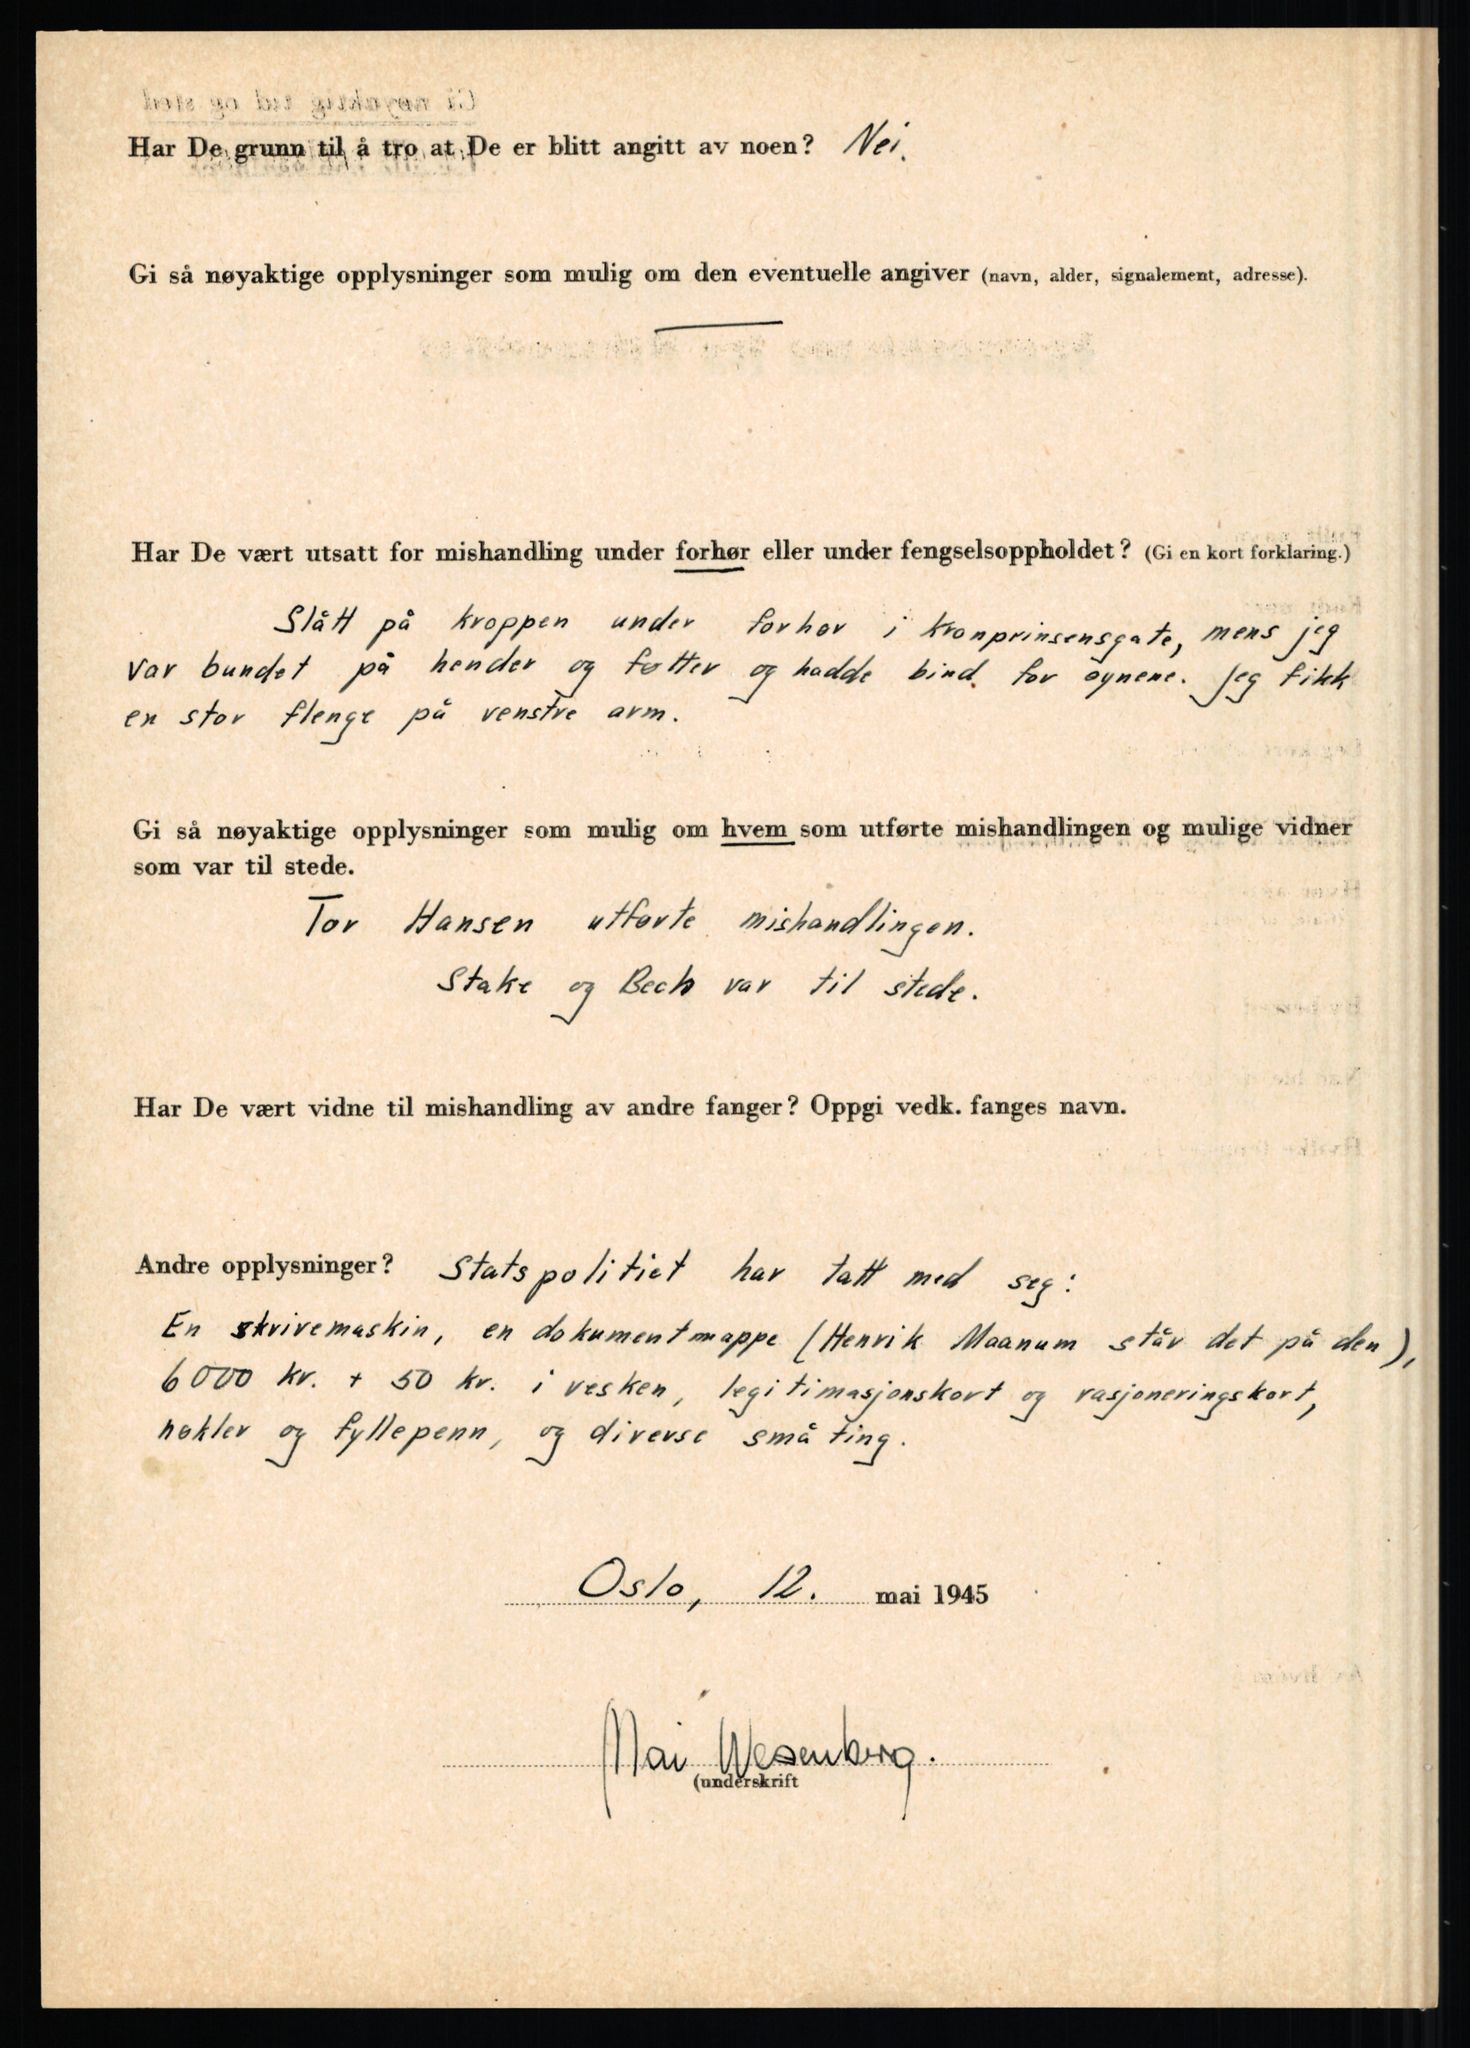 Har De grunn til å tro at De er blitt angitt av noen? Nei.
Gi så nøyaktige opplysninger som mulig om den eventuelle angiver (navn, alder, signalement, adresse).
Har De vært utsatt for mishandling under forhør eller under fengselsoppholdet? (Gi en kort forklaring.)
Slått på kroppen under forhør i Kronprinsensgate, mens jeg
var bundet på hender og føtter og hadde bind for øynene. Jeg fikk
en stor flenge på venstre arm.
Gi så nøyaktige opplysninger som mulig om hvem som utførte mishandlingen og mulige vidner
som var til stede.
Tor Hansen utførte mishandlingen.
Stake og Bech var til stede.
Har De vært vidne til mishandling av andre fanger? Oppgi vedk. fanges navn.
Andre opplysninger? Statspolitiet har tatt med seg:
En skrivemaskin, en dokumentmappe (Henrik Maanum står det på den),
6000 kr. + 50 kr. i vesken, legitimasjonskort og rasjoneringskort,
nøkler og fyllepenn, og diverse små ting.
Oslo, 12. mai 1945
Mai Wesenberg.
(underskrift